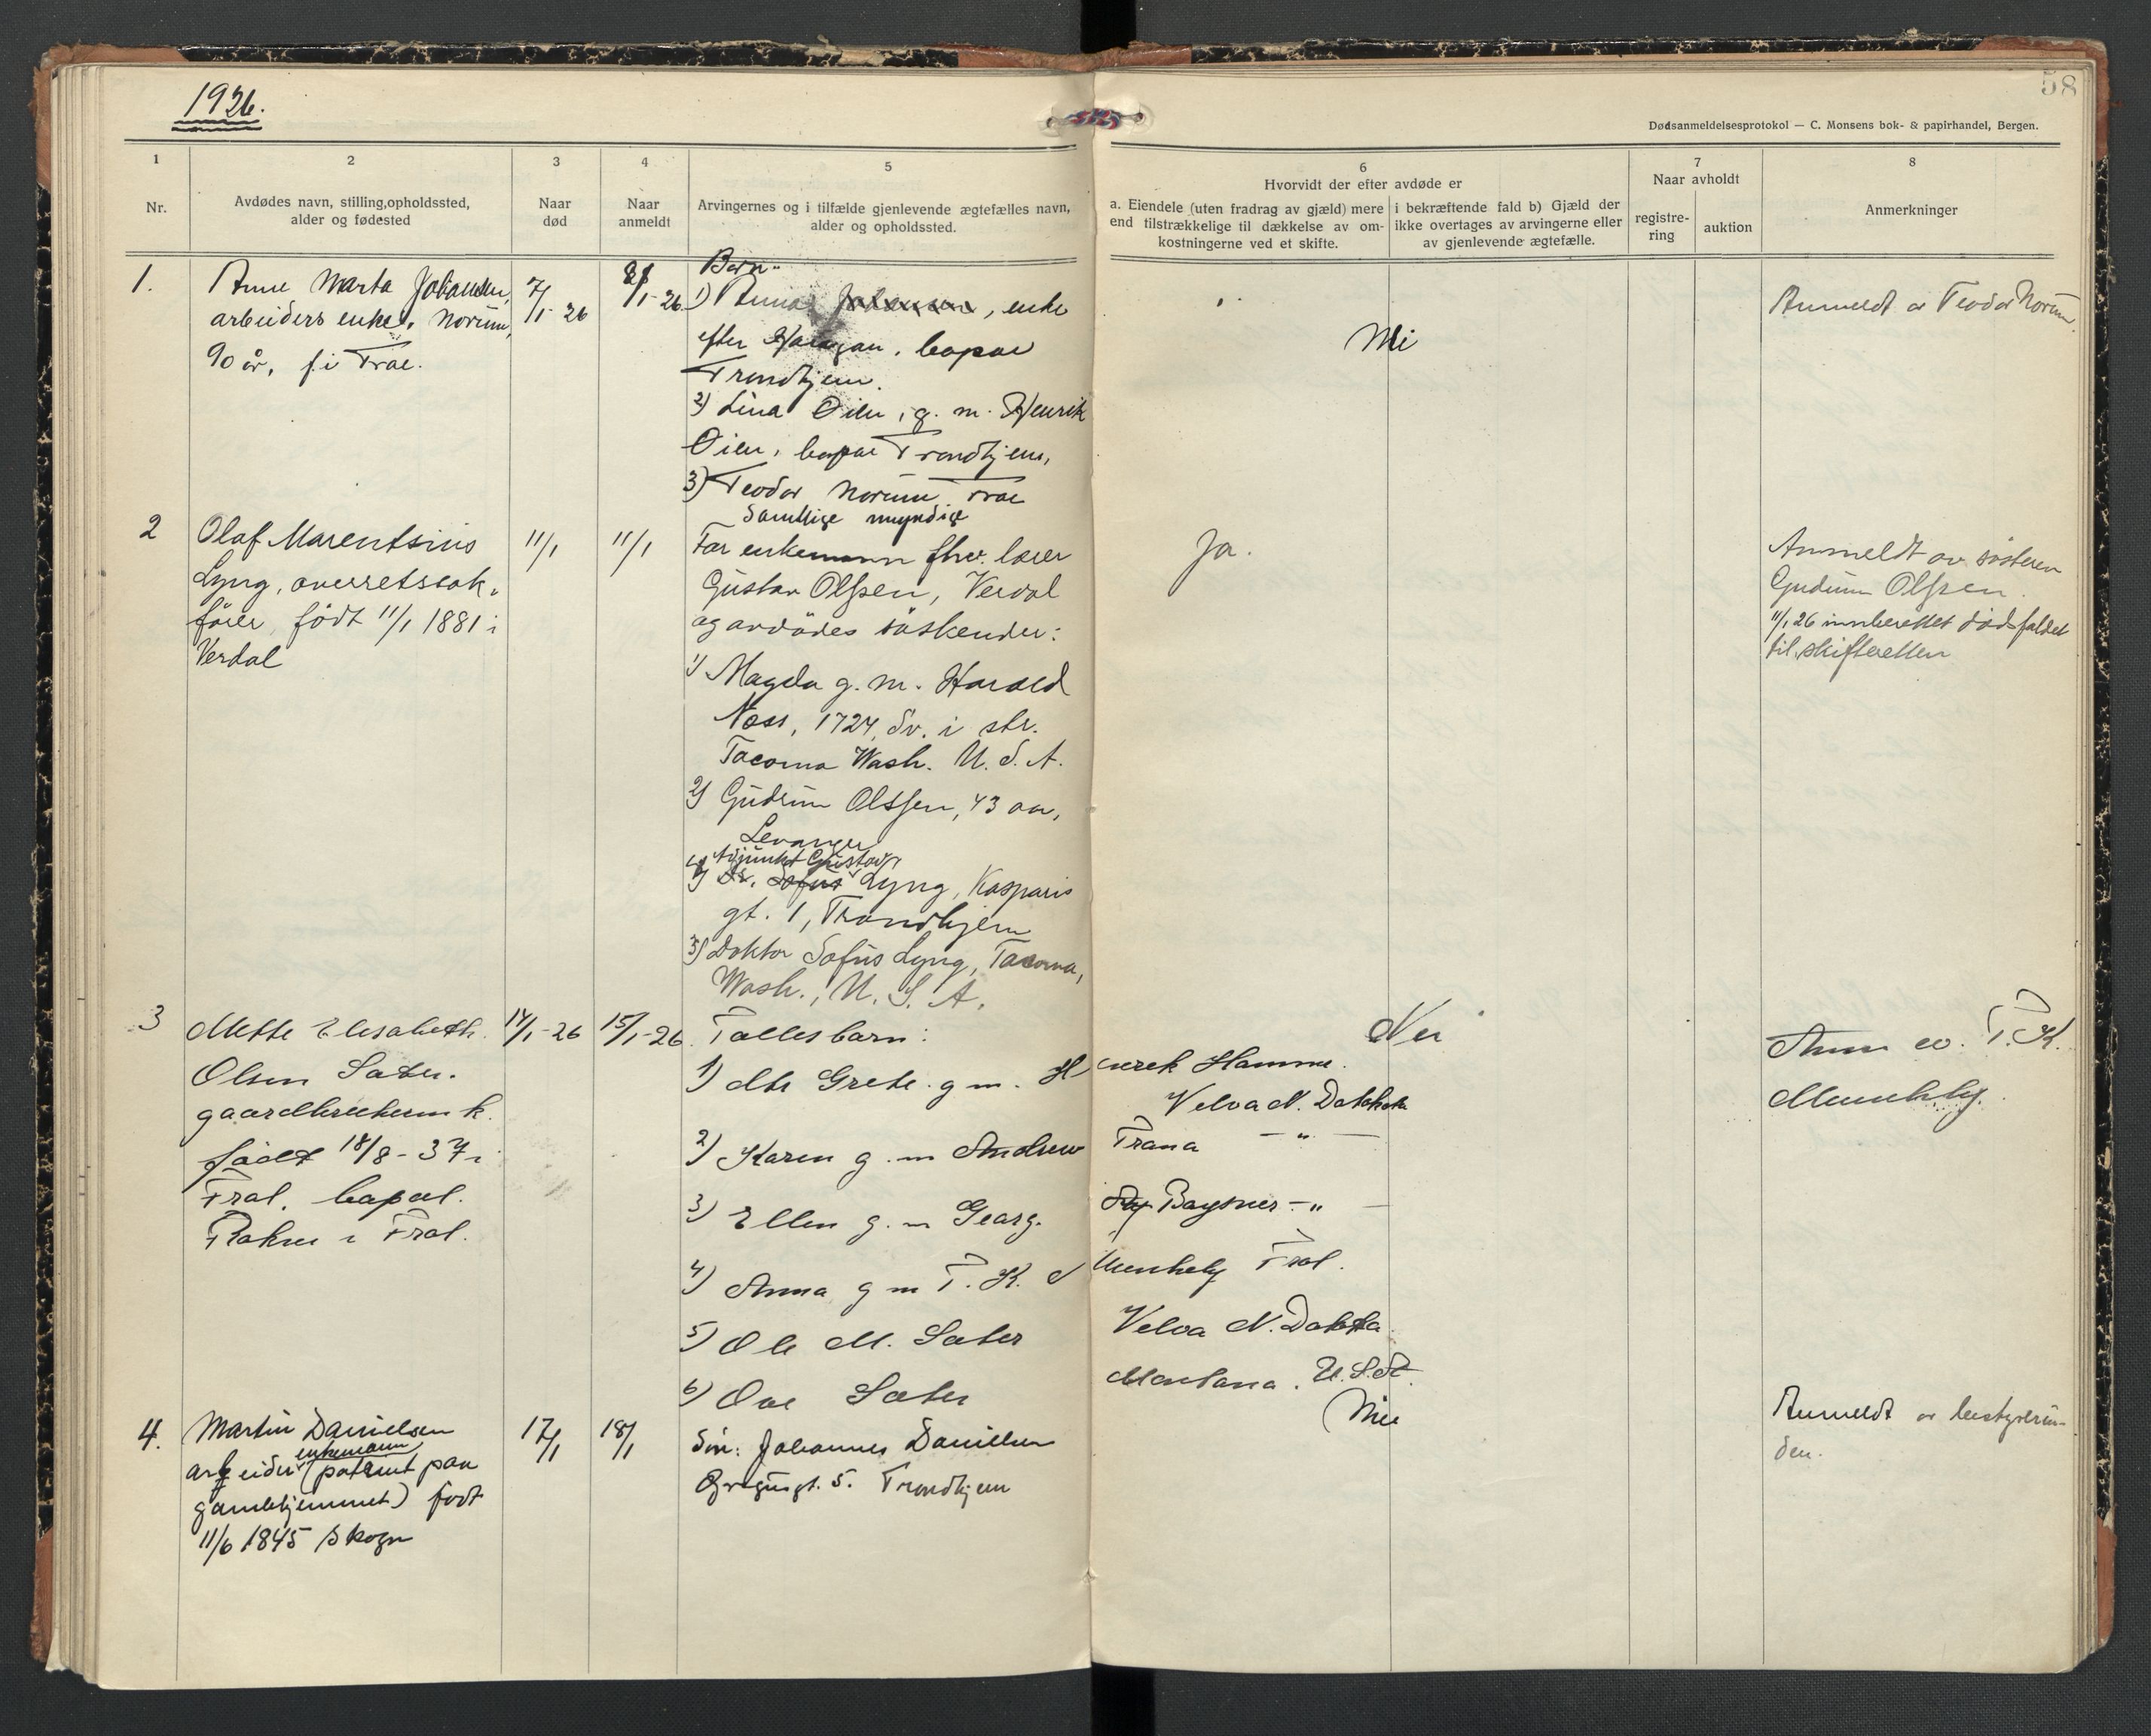 1926.
58
Dødsanmeldelsesprotokol — C. Monsens bok- & papirhandel, Bergen.
1
Nr.
2
Avdødes navn, stilling, opholdssted,
alder og fødested
3
Naar
død
4
Naar
anmeldt
5
Arvingernes og i tilfælde gjenlevende ægtefælles navn,
alder og opholdssted.
6
Hvorvidt der efter avdøde er
a. Eiendele (uten fradrag av gjæld) mere
end tilstrækkelige til dækkelse av om-
kostningerne ved et skifte.
i bekræftende fald b) Gjæld der
ikke overtages av arvingerne eller
av gjenlevende ægtefælle.
7
Naar avholdt
registre-
ring
auktion
8
Anmerkninger
1.
Anne Marta Johansen,
arbeiders enke, Norum,
90 år, f. i Frol.
7/1-26
8/1-26
Barn:
1) Anna Johansen, enke
efter , bopæl
Trondhjem.
2) Lina Øien, g. m. Henrik
Øien, bopæl Trondhjem,
3) Teodor Norum, Frol
Samtlige myndige
Nei
Anmeldt av Teodor Norum.
2
Olaf Marentsius
Lyng, overretssak-
fører, født 11/1 1881 i
Verdal
11/1
11/1
Far enkemann fhv. lærer
Gustav Olssen, Verdal
og avdødes søskender:
1) Magda g. m. Harald
Næss, 1724, So. i str.
Tacoma Wash. U. S. A.
2) Gudrun Olssen, 43 aar,
Levanger
4) Adjunkt Gustav
Dr. Sofus Lyng, Kasparis
gt. 1, Trondhjem
3) Doktor Sofus Lyng, Tacoma,
Wash., U. S. A.
Ja.
Anmeldt av søsteren
Gudrun Olssen.
11/1 26 innberettet dødsfaldet
til skifteretten
3
Mette Elisabeth
Olsen Sæter.
gaardbrukerenk.
født 18/8-37 i
Frol, bopæl.
i Frol.
14/1-26
15/1-26.
Fællesbarn:
Nei
1) Grete g m. Henrek Hamme.
Velva N. Dakkota
2) Karen g. m Andrew Trana — " —
3) Ellen g. m Georg. Baysner — " —
4) Anna g m T. K. Munkeby Frol.
5) Ole M. Sæter Velva N. Dakota.
6) Ove Sæter Montana. U.S.A.
Anm av. T. K.
Munkeby.
4.
Martin Danielsen
enkemann
arbeider (patient paa
gamlehjemmet) født
11/6 1845 Skogn
17/1
18/1
Søn: Johannes Danielsen
gt. 5. Trondhjem
Nei
Anmeldt av bestyrerin-
den.